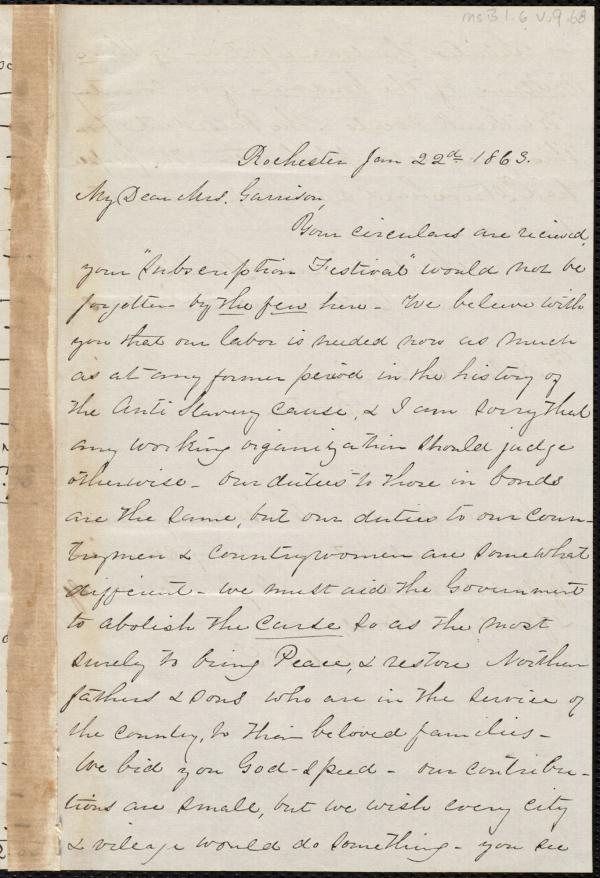 Ms B 1.6 v.9.68
Rochester Jan 22d 1863.
My Dear Mrs. Garrison,
Your circulars are recieved,
your "Subscription Festival" would not be
forgotten by the few here - We believe with
you that our labor is needed now as much
as at any former period in the history of
the Anti Slavery cause, & I am sorry that
any working organization should judge
otherwise - our duties to those in bonds
are the same, but our duties to our coun-
trymen & countrywomen are somewhat
different - we must aid the Government
to abolish the curse so as the most
surely to bring Peace, & restore Northern
fathers & sons who are in the service of
the country, to their beloved families -
We bid you God-speed - our contribu-
tions are small, but we wish every city
& village would do something - you see